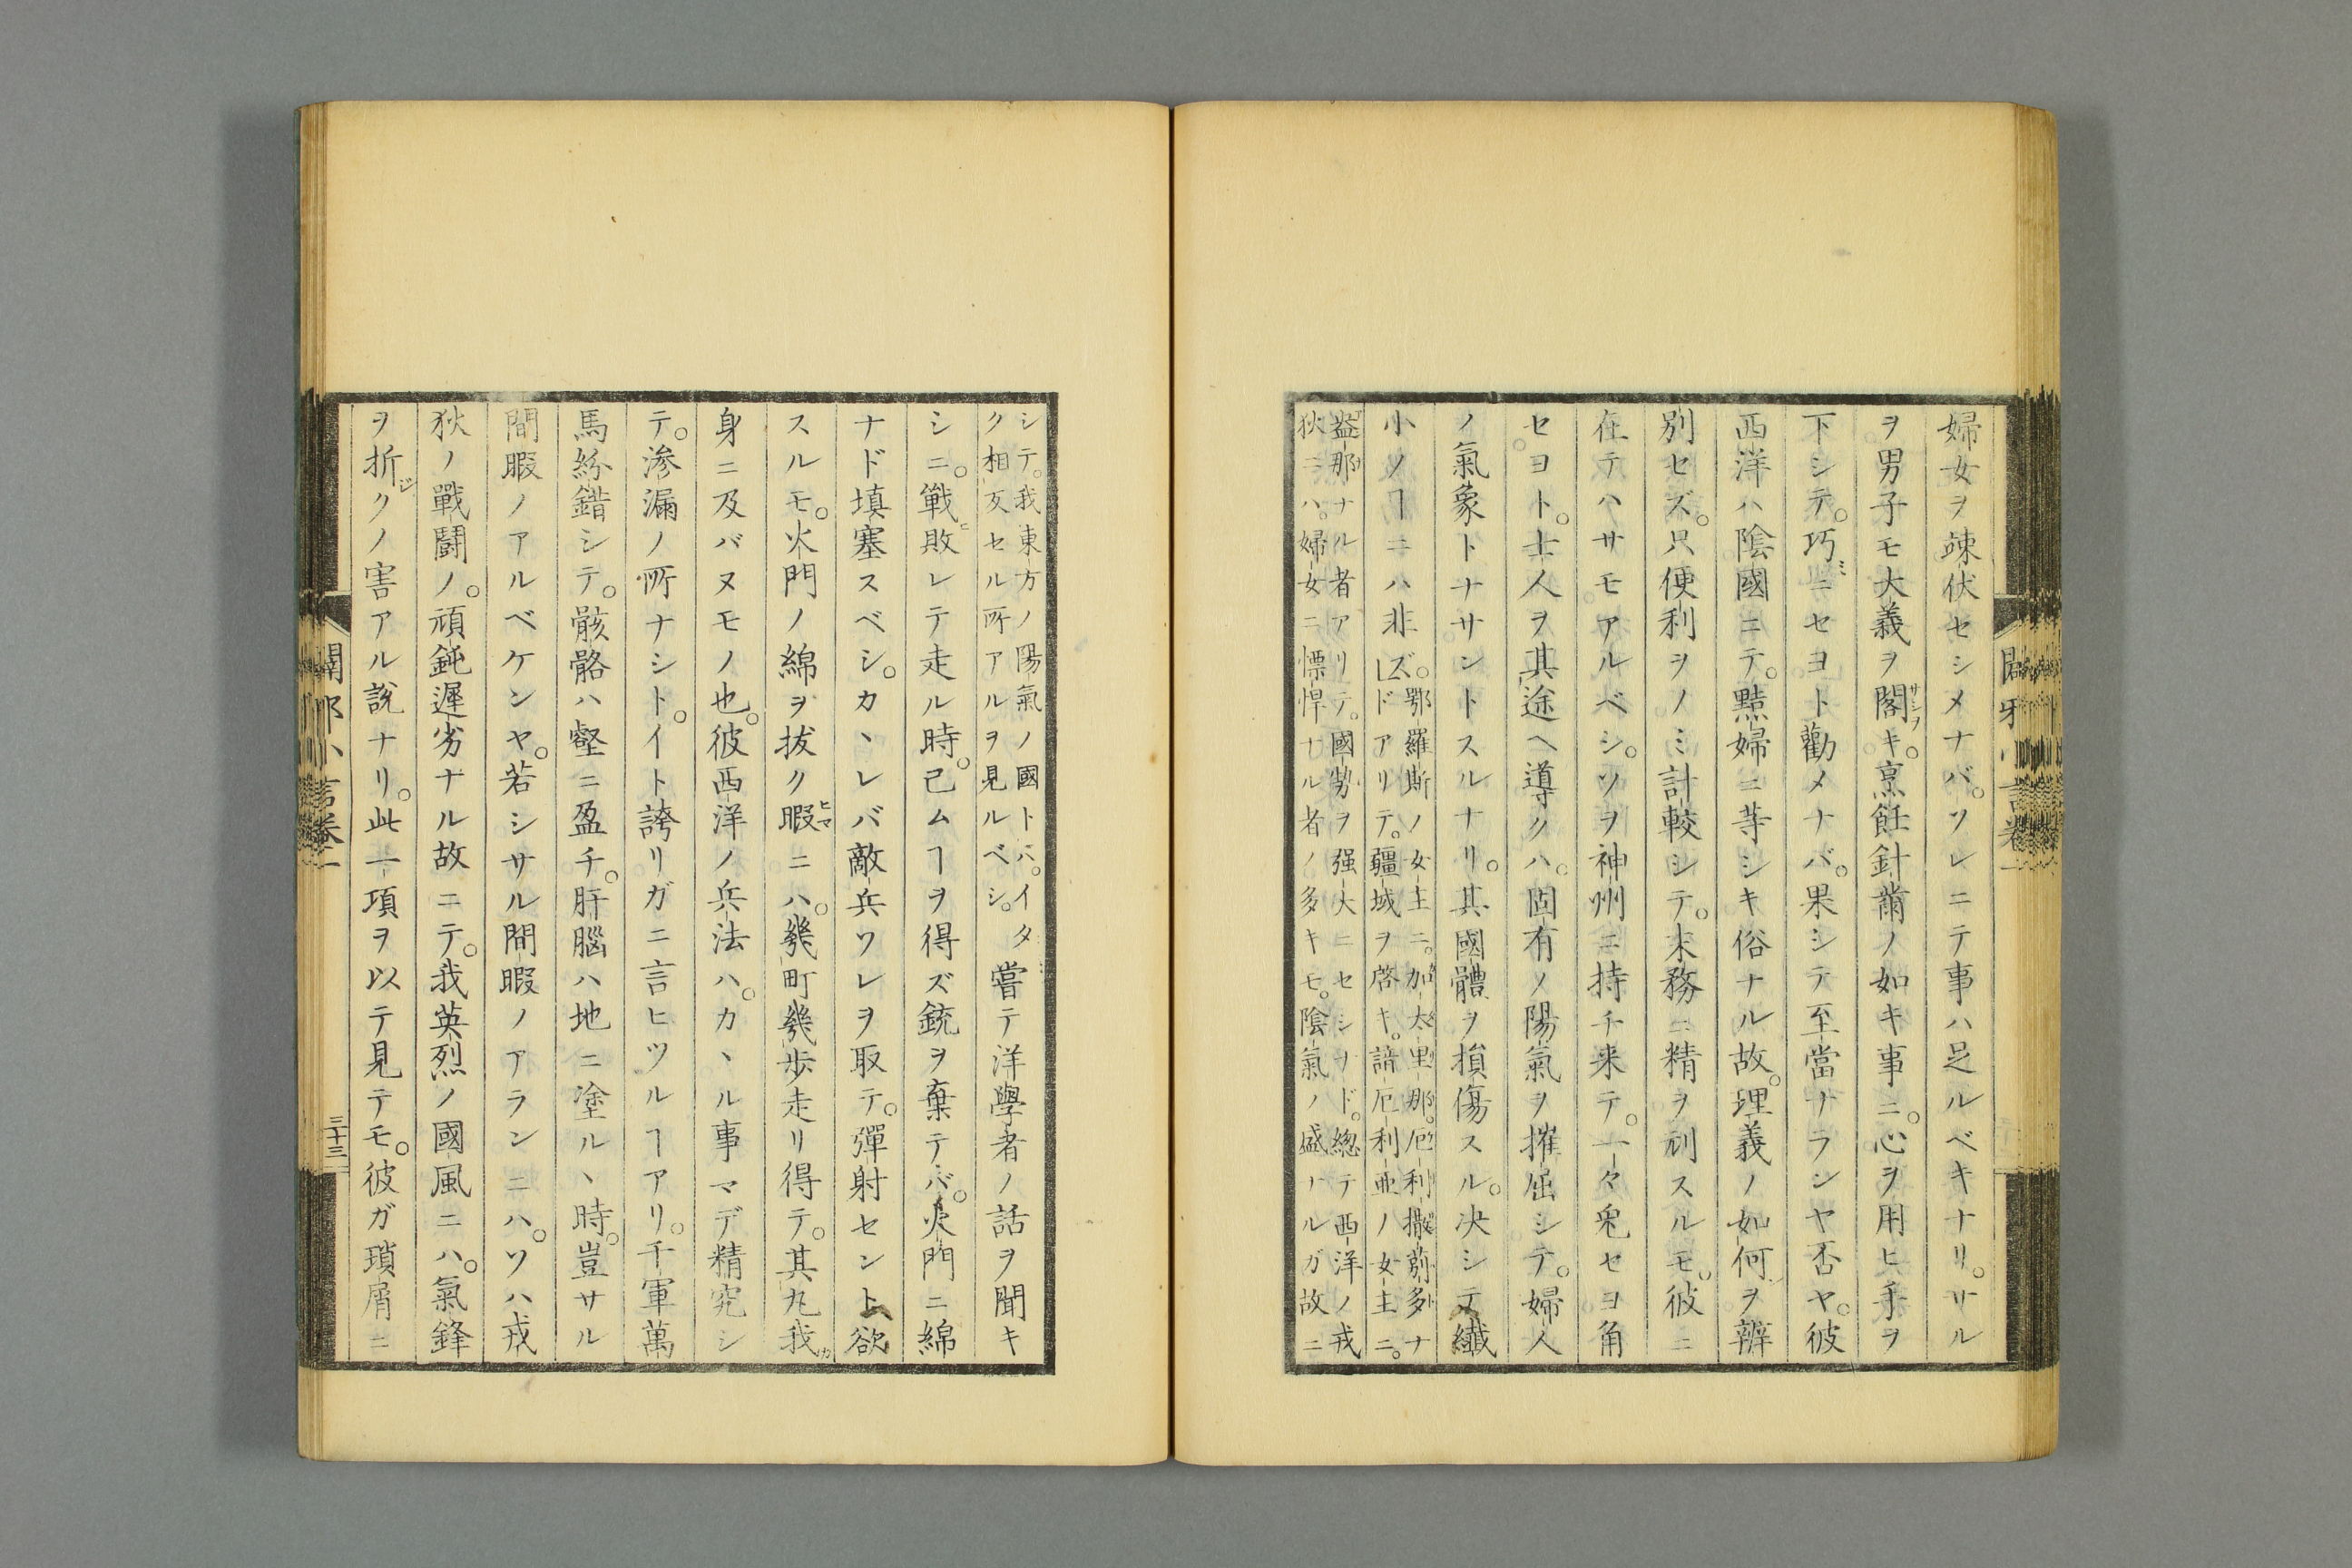 婦女ヲ竦伏セシメナバ。ソレニテ事ハ足ルベキナリ。サル
ヲ男子モ大義ヲ閣キ。烹飪針黹ノ如キ事ニ。心ヲ用ヒ手ヲ
下シテ。巧ニセヨト勸メナバ。果シテ至當ナランヤ否ヤ。彼
西洋ハ陰國ニテ。黠婦ニ等シキ俗ナル故。理義ノ如何ヲ辨
別セズ。只便利ヲノミ計較シテ。末務ニ精ヲ刓スルモ。彼ニ
在テハサモアルベシ。ソヲ神州ニ持チ来テ。一々皃セヨ角
セヨト。士人ヲ其途ヘ導クハ。固有ノ陽氣ヲ摧屈シテ。婦人
ノ氣象トナサントスルナリ。其國體ヲ損傷スル。决シテ纎
小ノヿニハ非ズ。鄂羅斯ノ女主ニ。加太里那。厄利撒蔚多ナ
ドアリテ。疆域ヲ啓キ。諳厄利亜ノ女主ニ。
盎那ナル者アリテ。國勢ヲ强大ニセシヲド。總テ西洋ノ戎
狄ニハ。婦女ニ慓悍ナル者ノ多キモ。陰氣ノ盛ナルガ故ニ
シテ。我東方ノ陽氣ノ國トハ。イタ
ク相反セル所アルヲ見ルベシ。嘗テ洋學者ノ話ヲ聞キ
シニ。戰敗レテ走ル時。已ムヿヲ得ズ銃ヲ棄テバ。火門ニ綿
ナド塡塞スベシ。カヽレバ敵兵ソレヲ取テ。彈射セント欲
スルモ。火門ノ綿ヲ拔ク暇ニハ。幾町幾歩走リ得テ。其丸我
身ニ及バヌモノ也。彼西洋ノ兵法ハ。カヽル事マデ精究シ
テ。滲漏ノ所ナシト。イト誇リガニ言ヒツルヿアリ。千軍萬
馬紛錯シテ。骸骼ハ壑ニ盈チ。肝腦ハ地ニ塗ルヽ時。豈サル
間暇ノアルベケンヤ。若シサル間暇ノアランニハ。ソハ戎
狄ノ戰鬪ノ。頑鈍遲劣ナル故ニテ。我英烈ノ國風ニハ。氣鋒
ヲ折クノ害アル說ナリ。此一項ヲ以テ見テモ。彼ガ瑣屑ニ
闢邪小言卷二
三十三